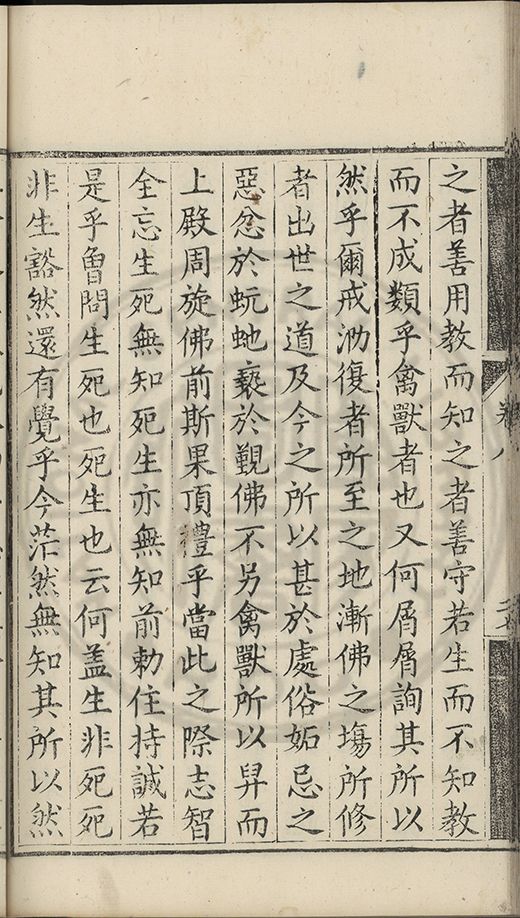 之者善用教而知之者善守若生而不知教
而不成類乎禽獸者也又何屑屑詢其所以
然乎爾戒泐復者所至之地漸佛之場所修
者出世之道及今之所以甚於處俗妬忌之
惡忿於蚖虵褻於覲佛不另禽獸所以舁而
上殿周旋佛前斯果頂禮乎當此之際志智
全忘生死無知死生亦無知前勅住持誠若
是乎曾問生死也死生也云何盖生非死死
非生豁然還有覺乎今茫然無知其所以然
卷八